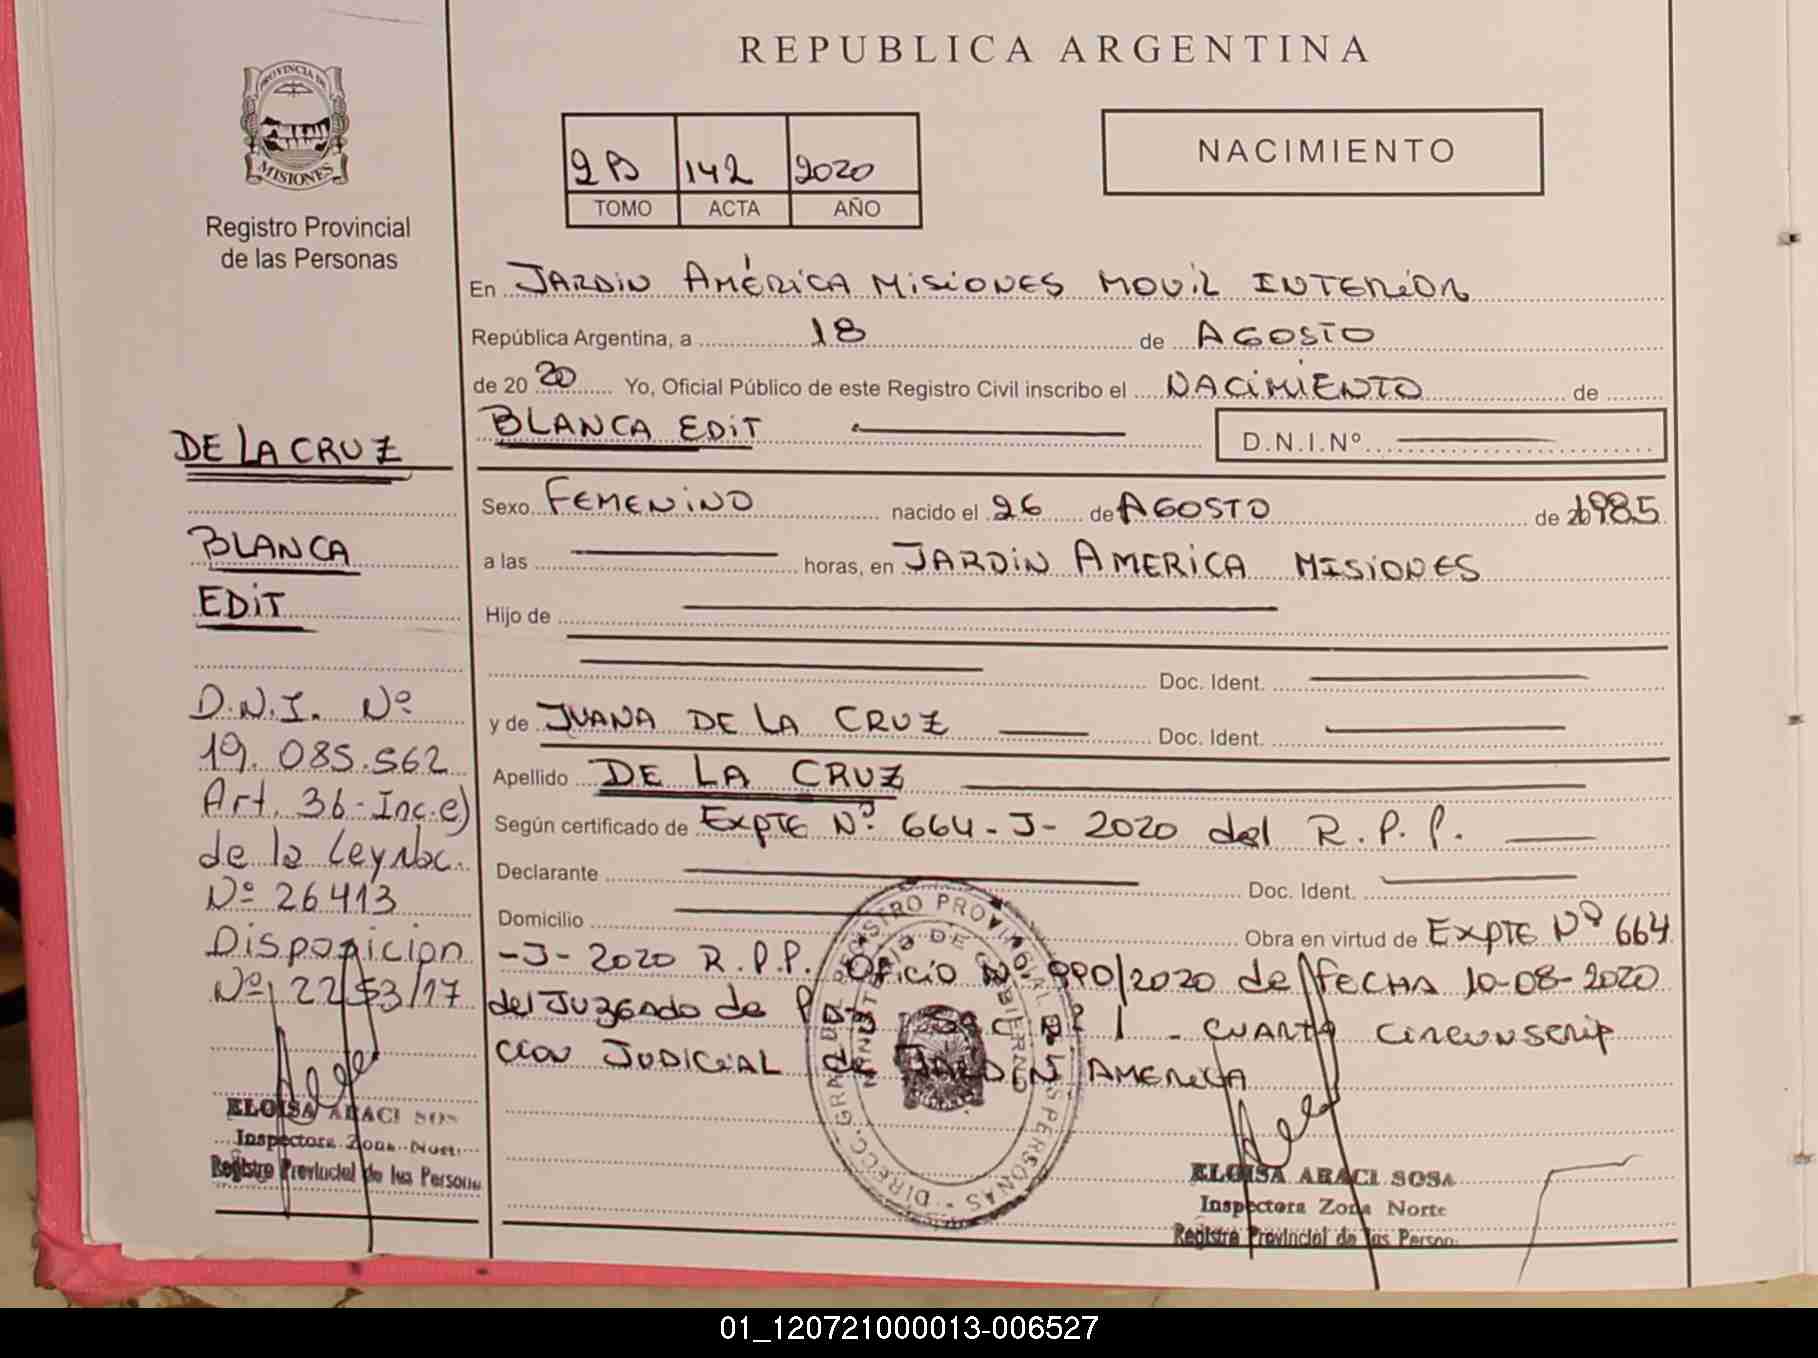 REPUBLICA ARGENTINA
PROVINCIA DE
MISIONES
Registro Provincial
de las Personas
2B 142 2020
TOMO ACTA AÑO
NACIMIENTO
En JARDIN AMÉRICA MISIONES MOVIL INTERIOR
República Argentina, a 18 de AGOSTO
de 2020 Yo, Oficial Público de este Registro Civil inscribo el NACIMIENTO de
BLANCA EDIT D.N.I.Nº
Sexo FEMENINO nacido el 26 de AGOSTO de 1985
a las horas, en JARDIN AMERICA MISIONES
Hijo de
Doc. Ident.
y de JUANA DE LA CRUZ Doc. Ident.
Apellido DE LA CRUZ
Según certificado de EXPTE Nº 664-J-2020 del R.P.P.
Declarante Doc. Ident.
Domicilio
Obra en virtud de EXPTE Nº 664
-J-2020 R.P.P. OFICIO Nº 990/2020 de FECHA 10-08-2020
del JUZGADO de PAZ SEC Nº 1 - CUARTA CIRCUNSCRIP
CION JUDICIAL de JARDIN AMERICA
DE LA CRUZ
BLANCA
EDIT
D.N.I. Nº
19.085.562
Art. 36-Inc.e)
de la Ley Nac.
Nº 26413
Disposicion
Nº 2253/17
ELOISA ARACI SOS
Inspectora Zona Norte
Registro Provincial de las Persona
DIRECC. GRAL. DEL REGISTRO PROVINCIAL DE LAS PERSONAS
MINISTERIO DE GOBIERNO
ELOISA ARACI SOSA
Inspectora Zona Norte
Registro Provincial de las Person
01_120721000013-006527